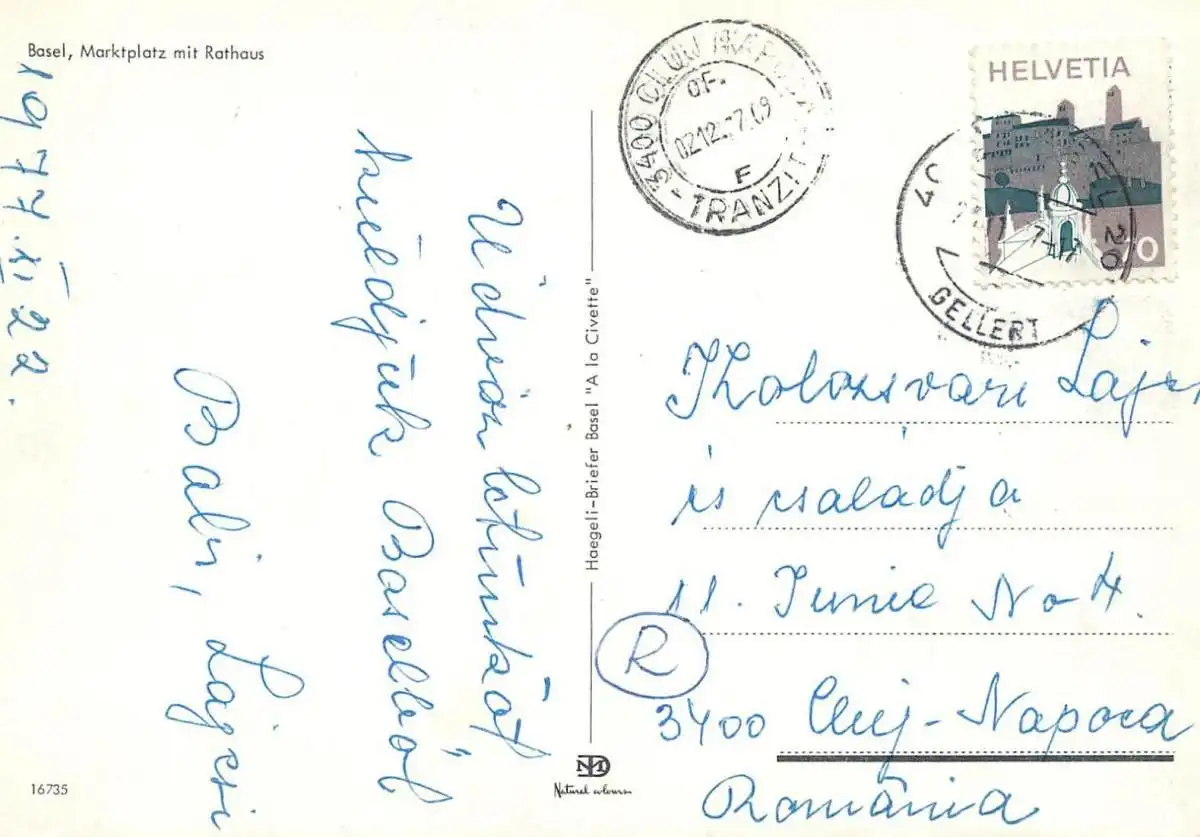 Basel, Marktplatz mit Rathaus
1977. XI 22.
Üdvözletünket
küldjük Baselből
Balis, Lajcsi
16735
Haegeli-Briefer Basel "A la Civette"
Natural colours
3400 CLUJ NAPOCA
OF.
02.12.77.09
F
TRANZIT
HELVETIA
40
GELLERT
Kolozsvári Lajos
és családja
11. Iunie No 4.
R
3400 Cluj-Napoca
România